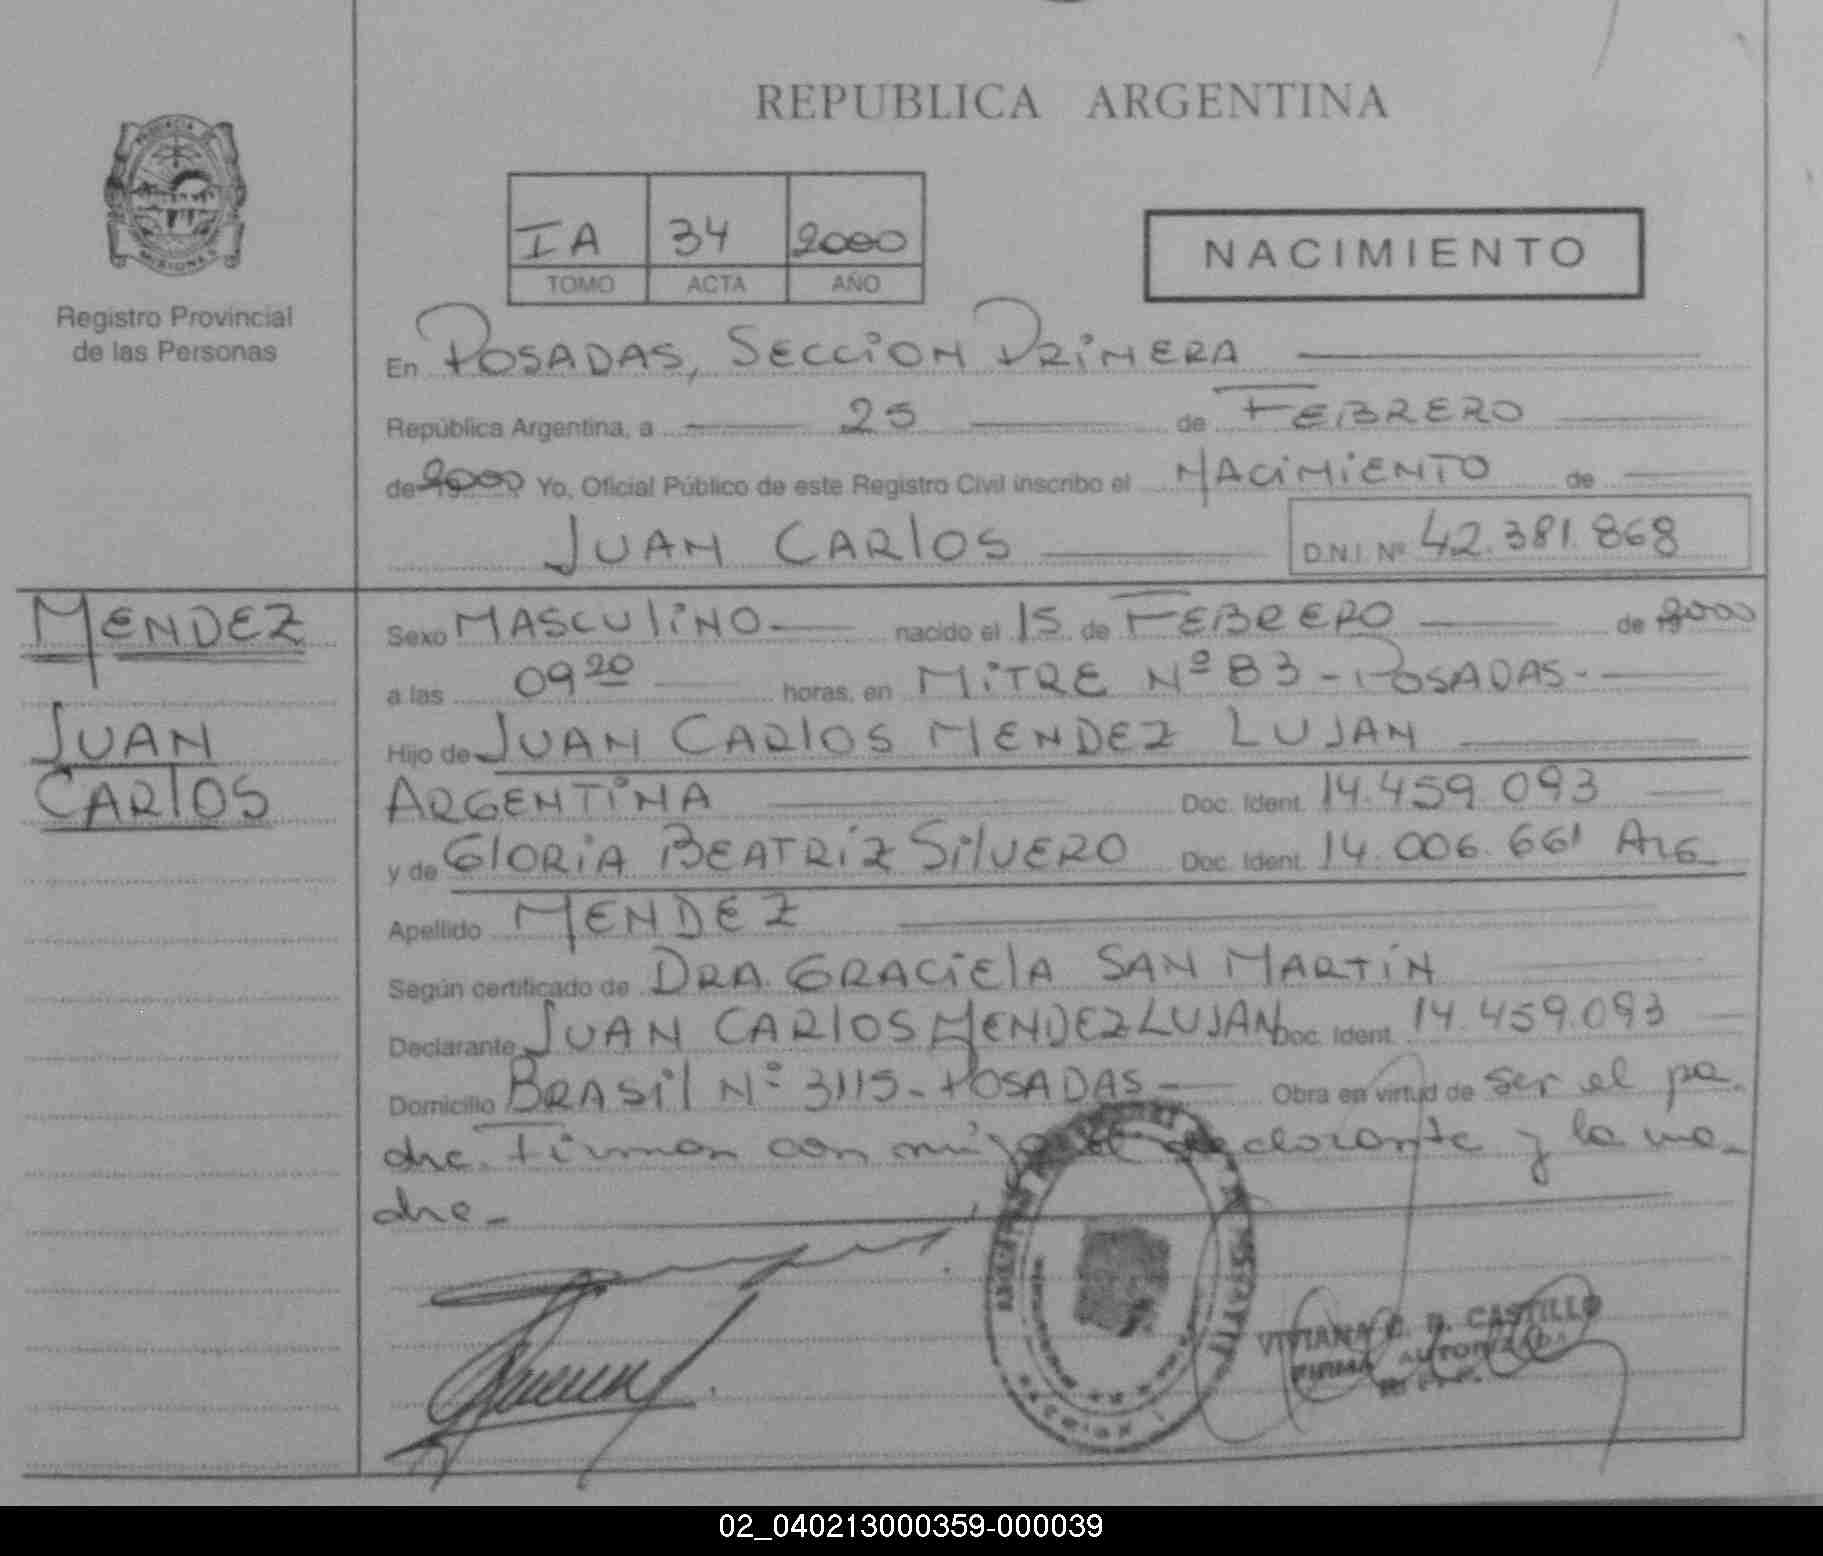 REPUBLICA ARGENTINA
PROVINCIA
MISIONES
Registro Provincial
de las Personas
IA 34 2000
TOMO ACTA AÑO
NACIMIENTO
En POSADAS, SECCION PRIMERA
República Argentina, a 25 de FEBRERO
de 2000 Yo, Oficial Público de este Registro Civil inscribo el NACIMIENTO de
JUAN CARLOS D.N.I. Nº 42.381.868
MENDEZ
JUAN
CARLOS
Sexo MASCULINO nacido el 15 de FEBRERO de 2000
a las 09 20 horas, en MITRE Nº 83 - POSADAS-
Hijo de JUAN CARLOS MENDEZ LUJAN
ARGENTINA Doc. Ident. 14.459.093
y de GLORIA BEATRIZ SILVERO Doc. Ident. 14.006.661 ARG
Apellido MENDEZ
Según certificado de DRA. GRACIELA SAN MARTIN
Declarante JUAN CARLOS MENDEZ LUJAN Doc. Ident. 14.459.093
Domicilio BRASIL Nº 3115 - POSADAS Obra en virtud de ser el pa-
dre. Firman con migo el declarante y la ma-
dre-
VIVIANA C. R. CASTILLO
FIRMA AUTORIZADA
02_040213000359-000039